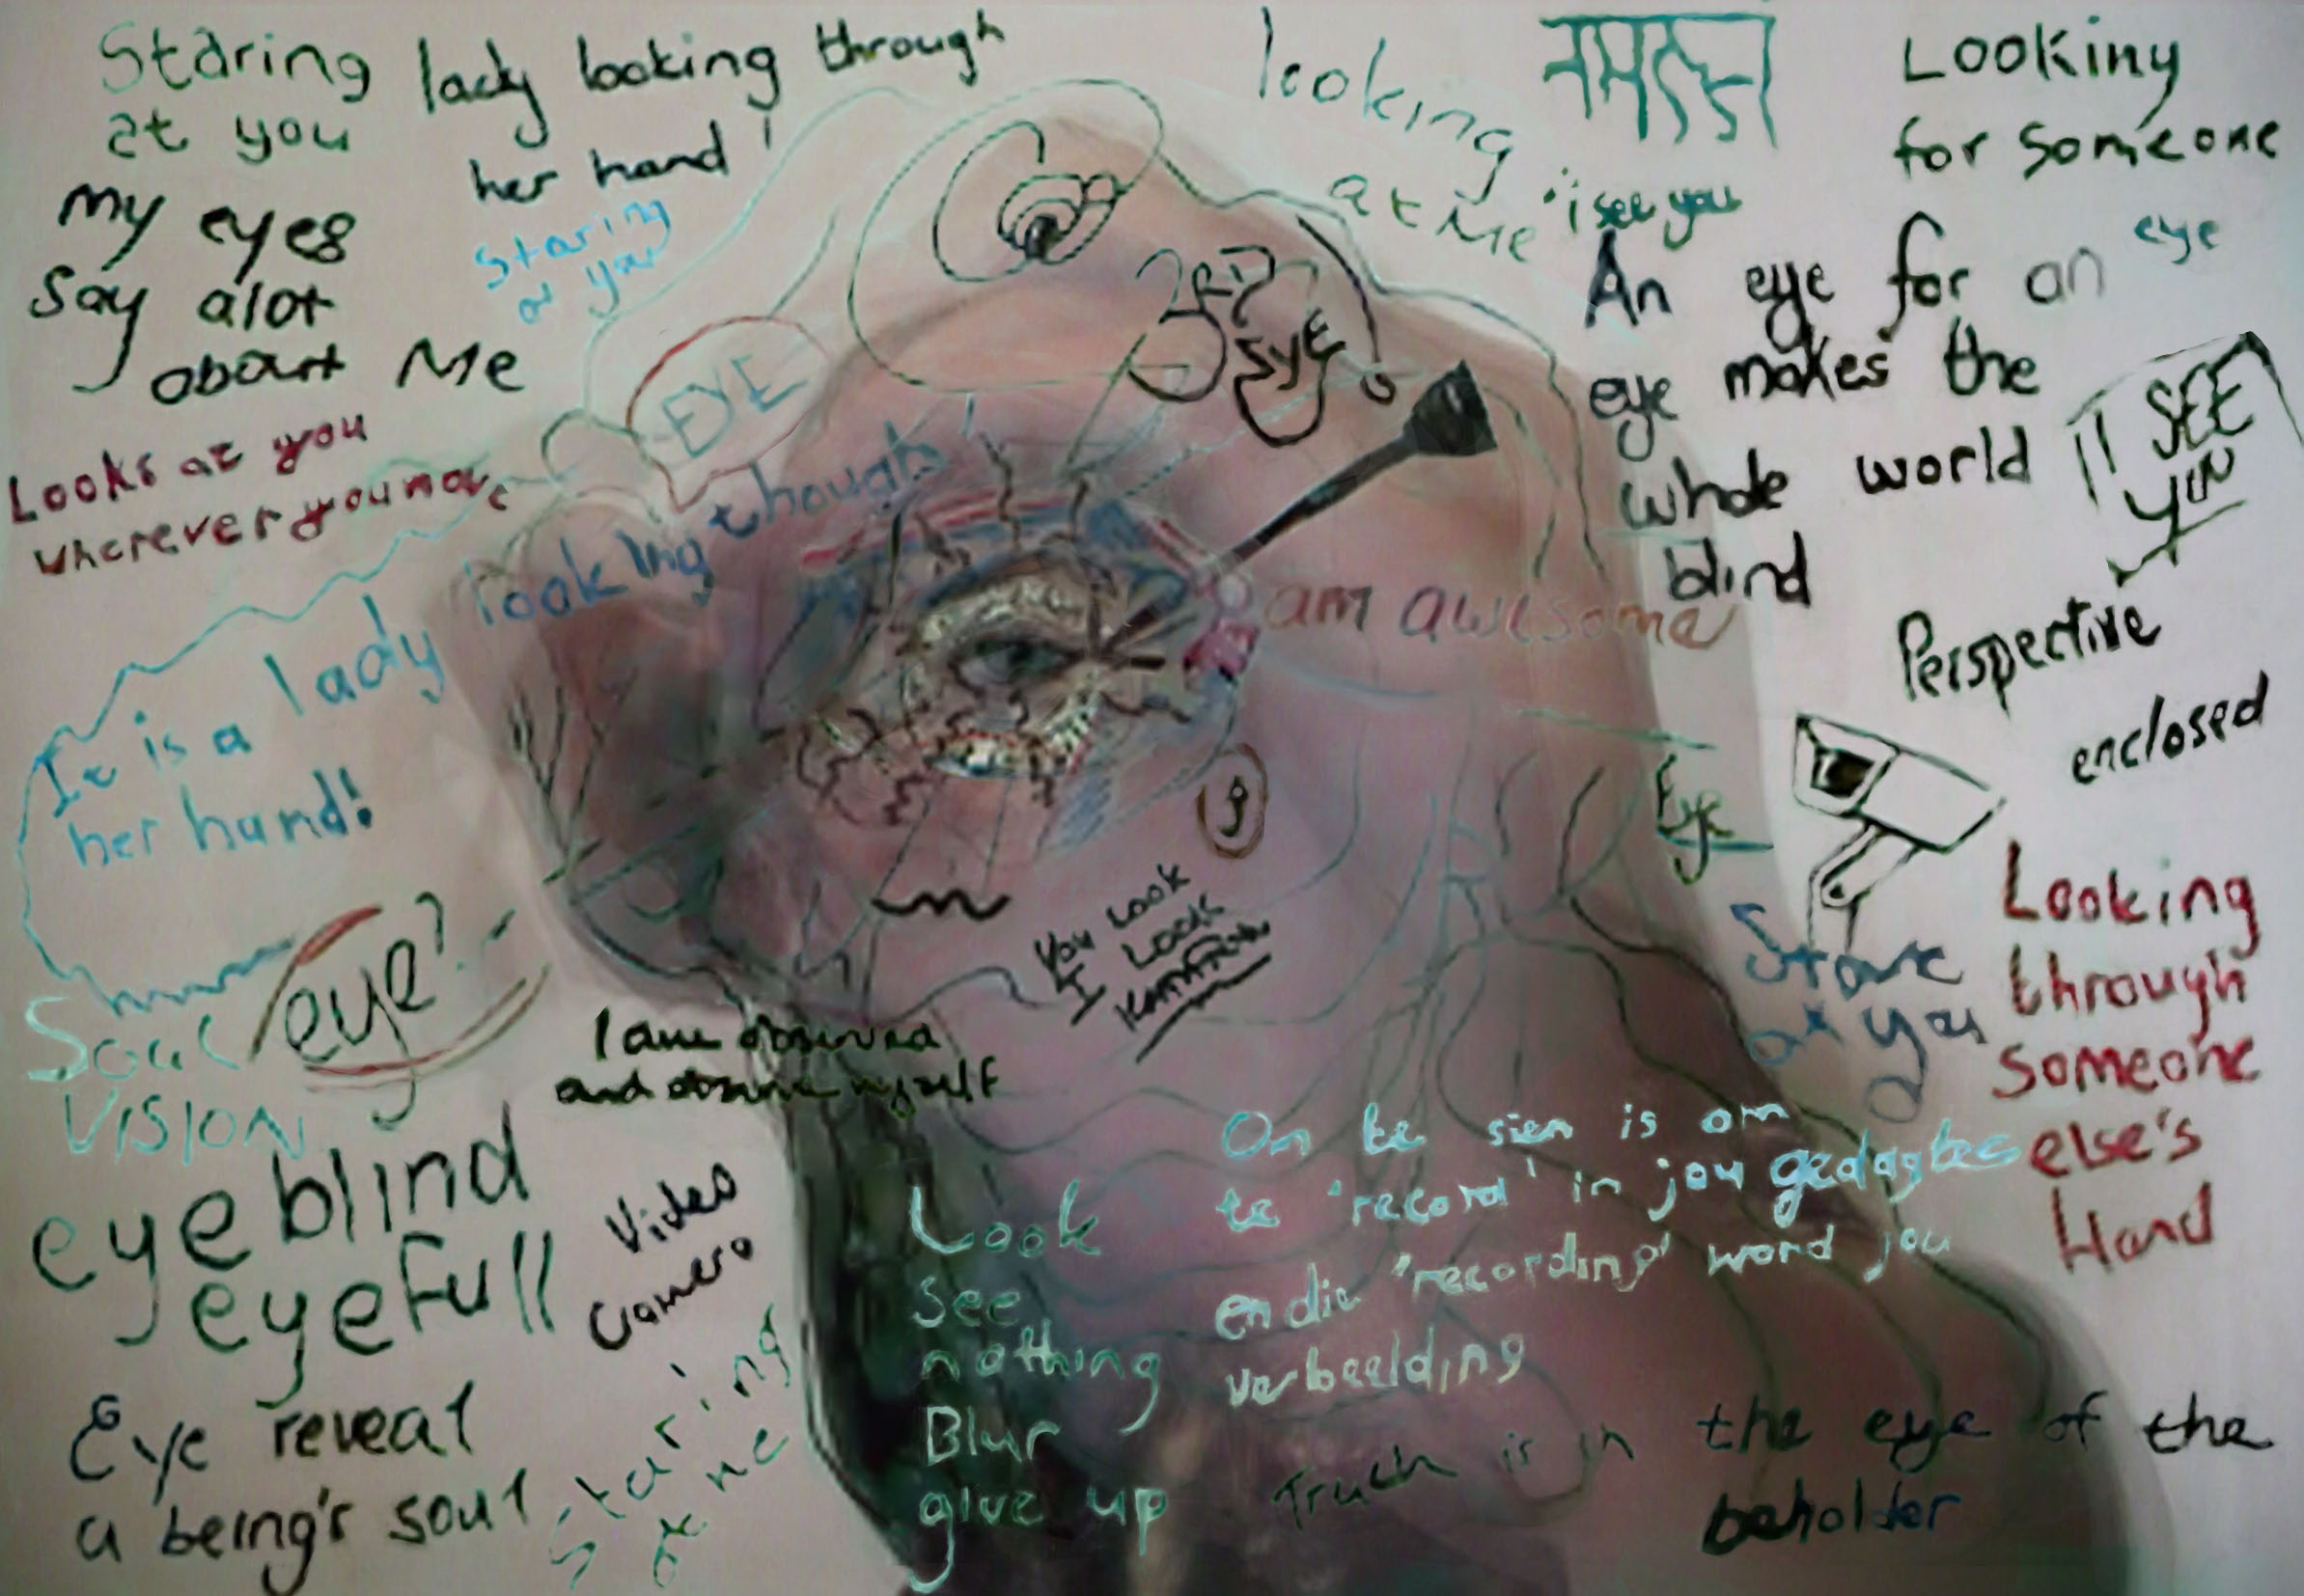 Staring
at you
lady looking through
her hand!
my eyes
say alot
about Me
Staring
at you
Looks at you
wherever you move
EYE
looking
at Me
"i see you
नमस्ते
Looking
for someone
3RD
EYE
An eye for an eye
eye makes the
whole world
blind
I SEE
YOU
am awesome
It is a lady looking though
her hand!
Perspective
enclosed
Eye
You Look
I Look
Stare
at you
Looking
through
someone
else's
Hand
eye?
Soul
VISION
I am observed
and observe myself
eyeblind
eyefull
Video
Camera
Eye reveal
a being's soul
staring
at me
Look
see
nothing
Blur
give up
On te sien is om
te 'record' in jou gedagtes
en die 'recording' word jou
verbeelding
Truth is in the eye of the
beholder